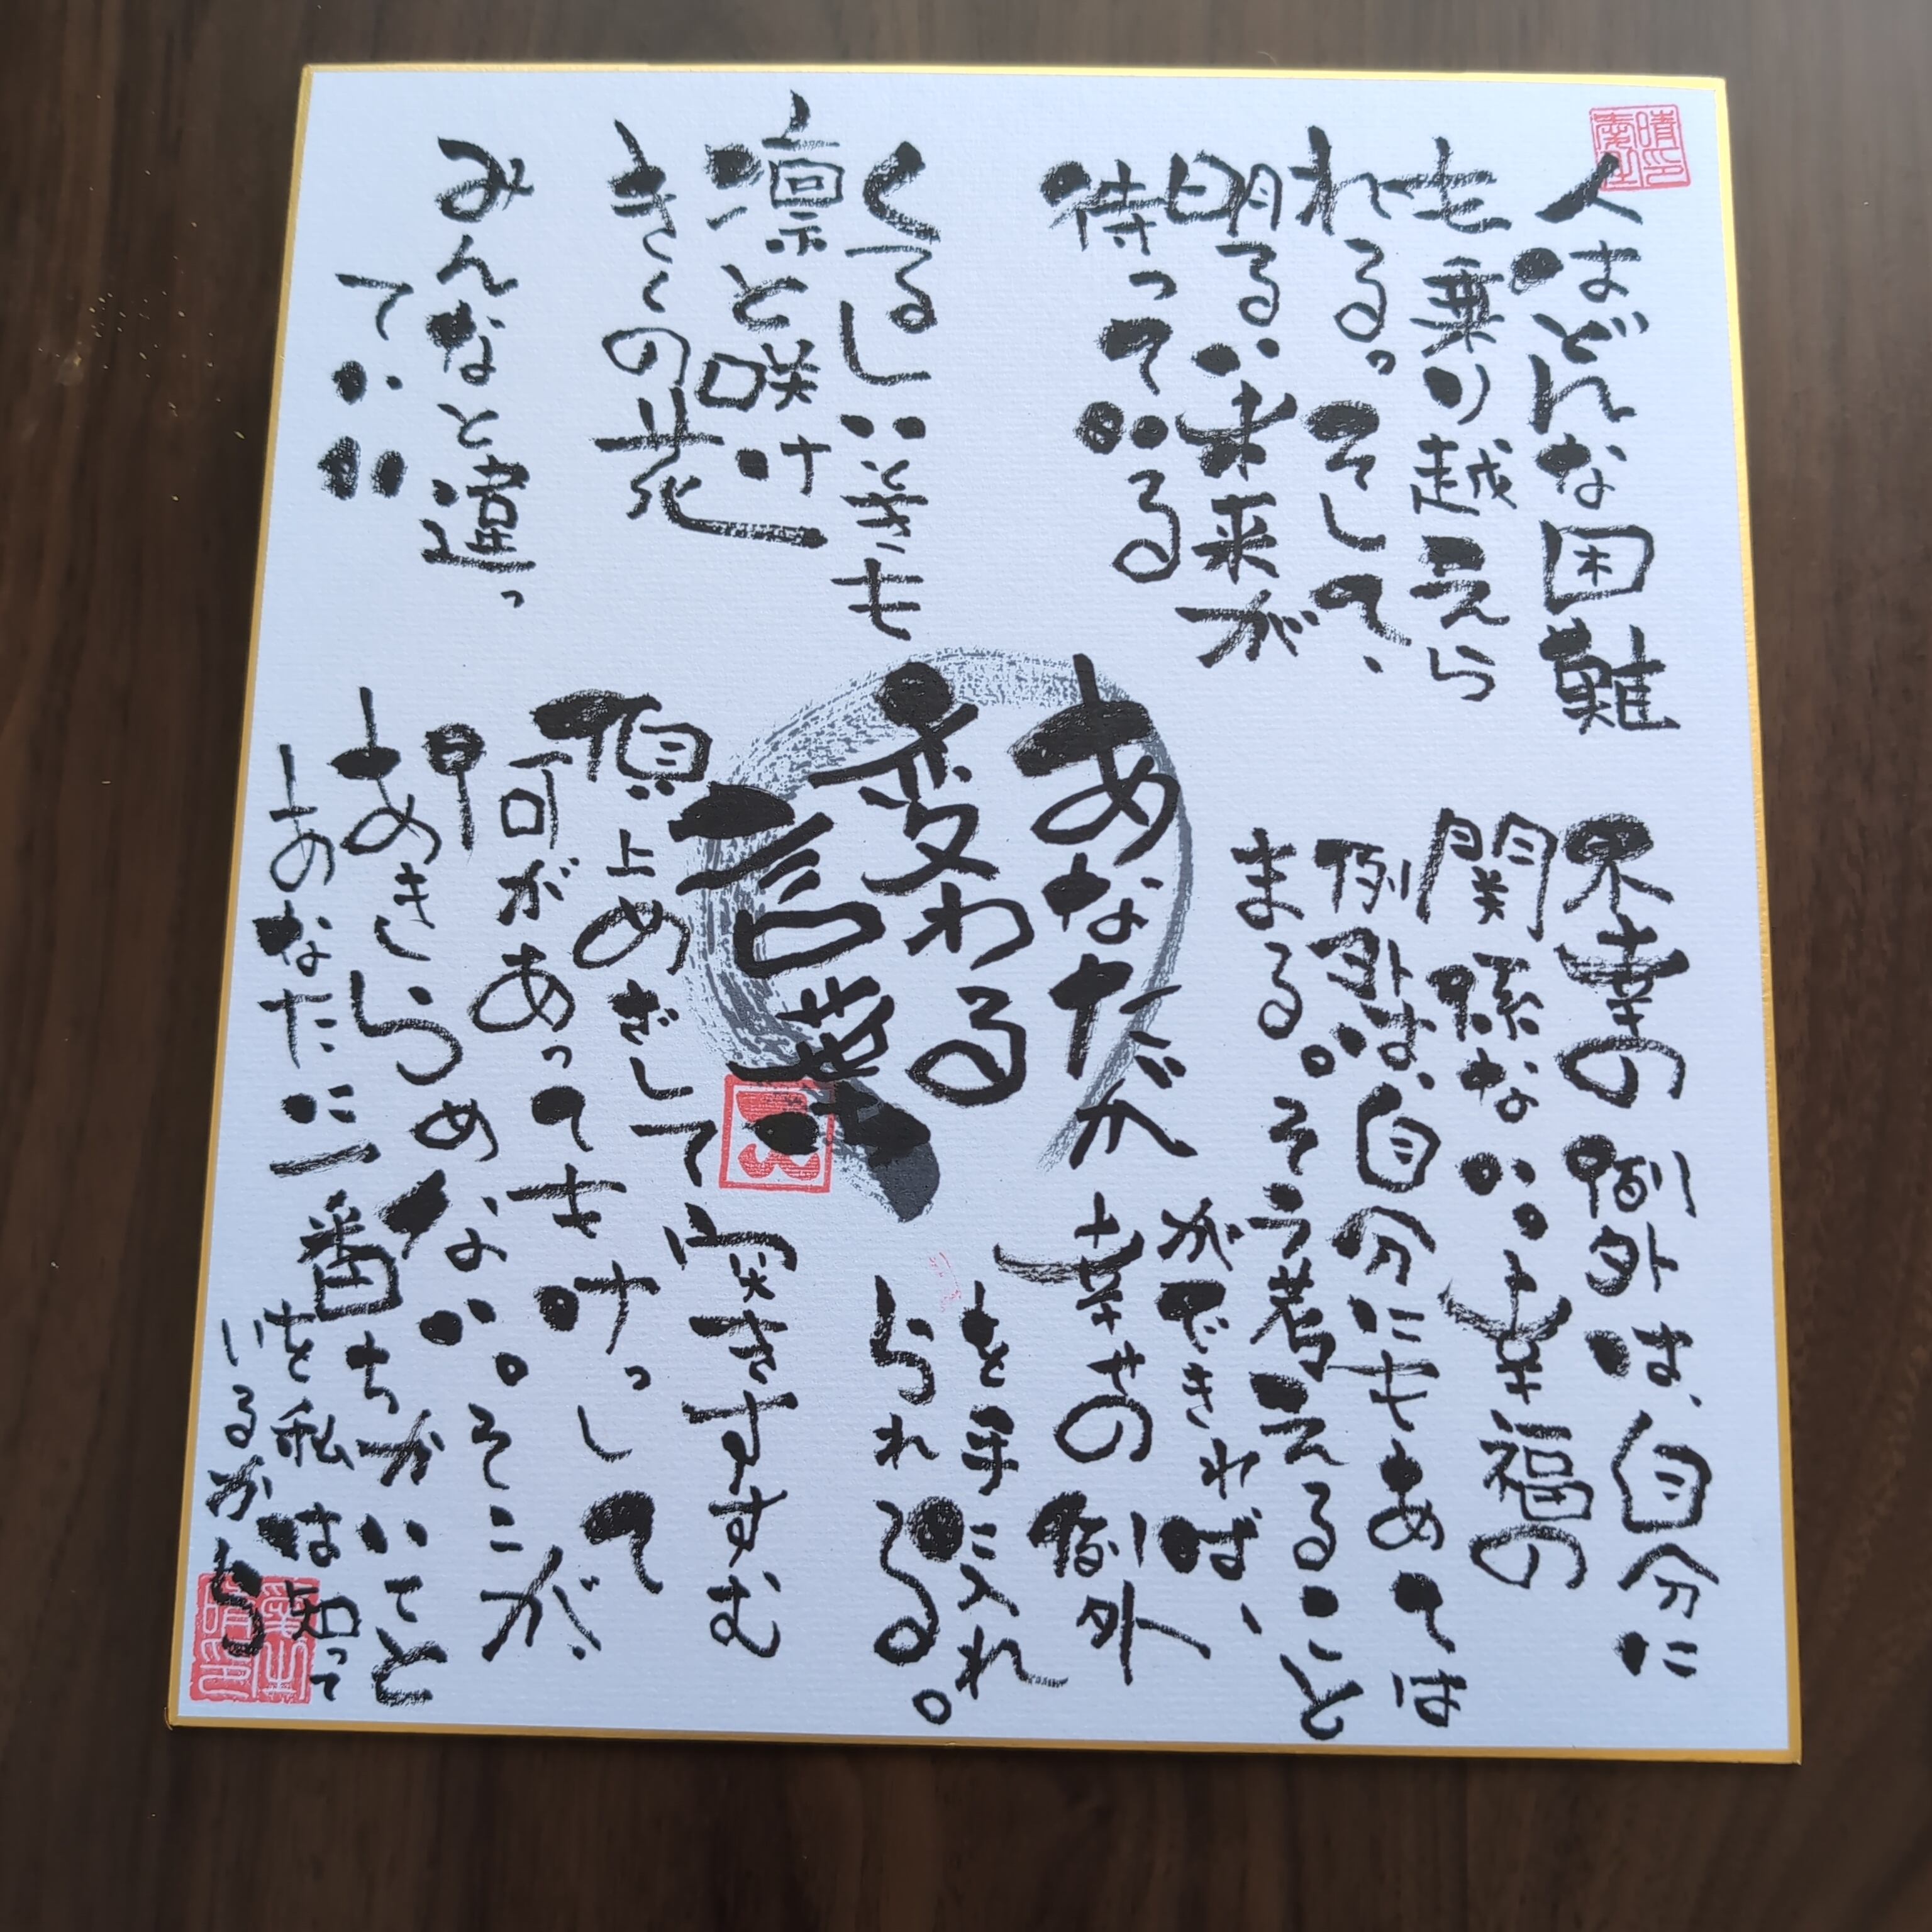 人はどんな困難
も乗り越えら
れる。そして、
明るい未来が
待っている
くるしいときも
凛と咲け
きくの花
みんなと違っ
ていい
あなたが
変わる
言葉
不幸の例外は、自分に
関係ない。幸福の
例外は、自分にもあては
まる。そう考えること
ができれば、
幸せの例外
を手に入れ
られる。
頂上めざして突きすすむ
何があってもけっして
あきらめない。そこが、
あなたに一番ちかいこと
を私は知って
いるから